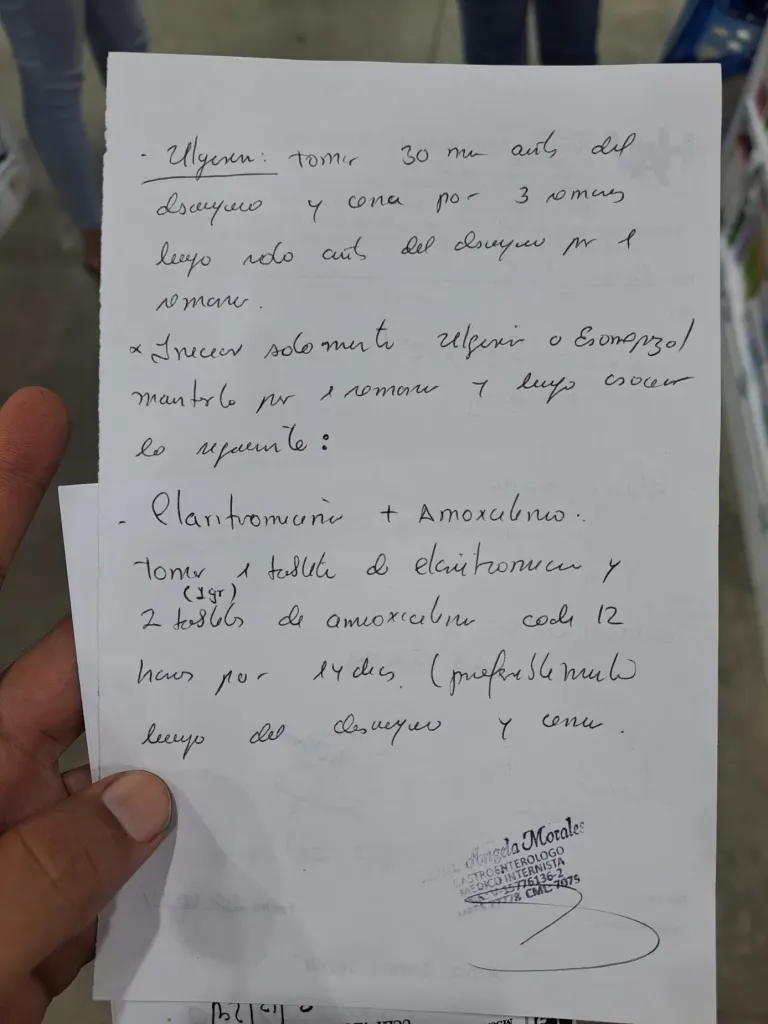 - Ulgexin: tomar 30 min antes del
desayuno y cena por 3 semanas
luego solo antes del desayuno por 1
semana.
* Iniciar solamente o Esomeprazol
mantenerlo por 1 semana y luego asociar
lo siguiente:
- Claritromicina + Amoxicilina.
Tomar 1 tableta de claritromicina y
(1gr)
2 tabletas de amoxicilina cada 12
horas por 14 dias. (preferiblemente
luego del desayuno y cena.
Angela Morales
GASTROENTEROLOGO
MEDICO INTERNISTA
V-25776136-2
CML 7075